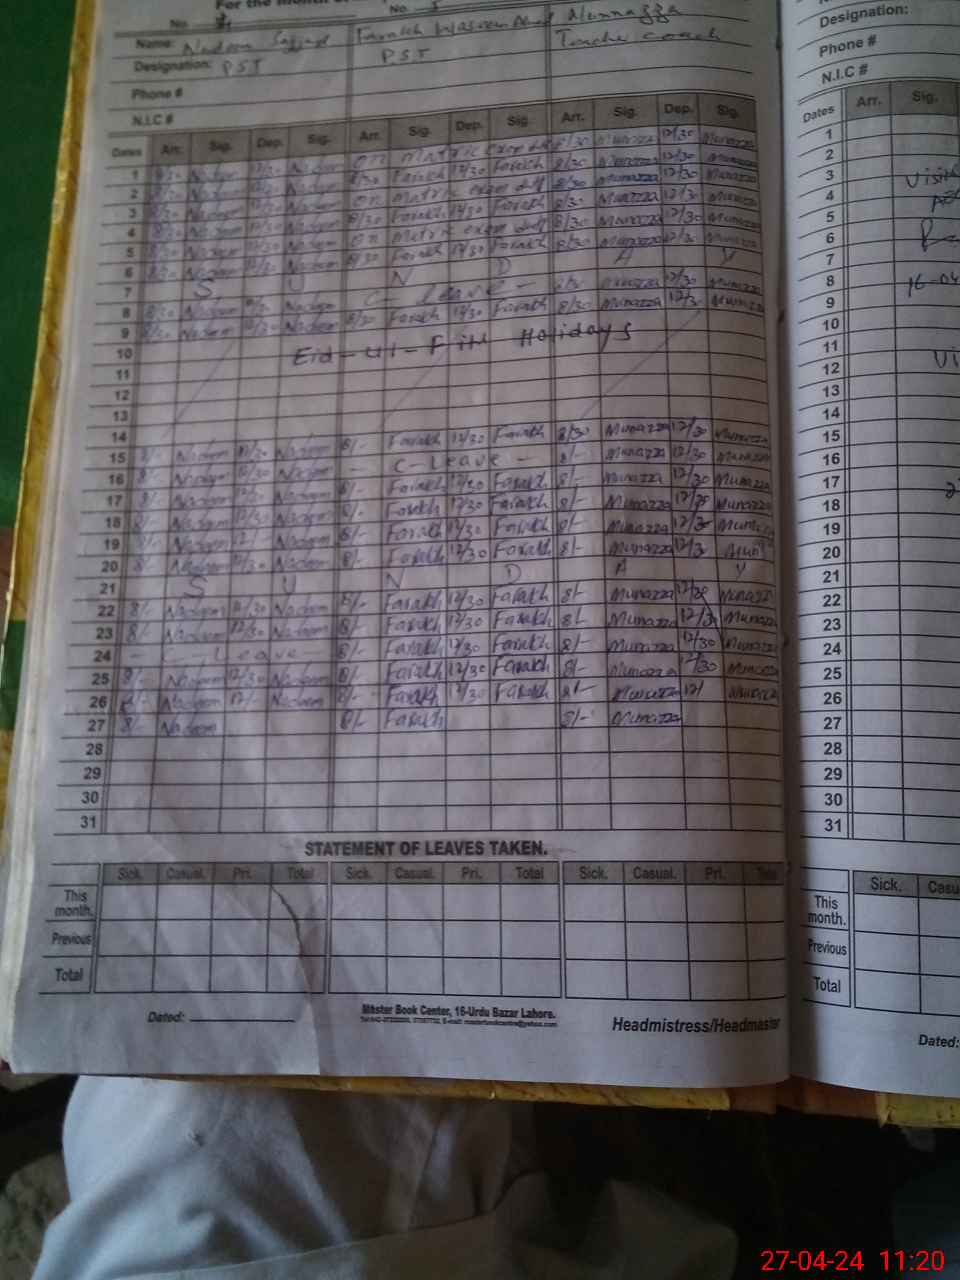 For the month of
No. No. 5
Name: Nadeem Sajjad Farakh Waseem Munnazza
Designation: PST PST Teacher coach
Phone #
N.I.C #
Dates Arr. Sig. Dep. Sig. Arr. Sig. Dep. Sig. Arr. Sig. Dep. Sig.
1 8/30 Nadeem 12/30 Nadeem on matric exam duty 8/30 Munazza 12/30 Munazza
2 8/30 Nadeem 12/30 Nadeem 8/30 Farakh 12/30 Farakh 8/30 Munazza 12/30 Munazza
3 8/30 Nadeem 12/30 Nadeem on matric exam duty 8/30 Munazza 12/30 Munazza
4 8/30 Nadeem 12/30 Nadeem 8/30 Farakh 12/30 Farakh 8/30 Munazza 12/30 Munazza
5 8/30 Nadeem 12/30 Nadeem on matric exam duty 8/30 Munazza 12/30 Munazza
6 8/30 Nadeem 12/30 Nadeem 8/30 Farakh 12/30 Farakh 8/30 Munazza 12/30 Munazza
7 S U N D A Y
8 8/30 Nadeem 12/30 Nadeem C - Leave - 8/30 Munazza 12/30 Munazza
9 8/30 Nadeem 12/30 Nadeem 8/30 Farakh 12/30 Farakh 8/30 Munazza 12/30 Munazza
10 Eid-ul-Fitr Holidays
11
12
13
14
15 8/- Nadeem 12/30 Nadeem 8/- Farakh 12/30 Farakh 8/30 Munazza 12/30 Munazza
16 8/- Nadeem 12/30 Nadeem - C-Leave - 8/- Munazza 12/30 Munazza
17 8/- Nadeem 12/30 Nadeem 8/- Farakh 12/30 Farakh 8/- Munazza 12/30 Munazza
18 8/- Nadeem 12/30 Nadeem 8/- Farakh 12/30 Farakh 8/- Munazza 12/30 Munazza
19 8/- Nadeem 12/ Nadeem 8/- Farakh 12/30 Farakh 8/- Munazza 12/30 Munazza
20 8/- Nadeem 12/30 Nadeem 8/- Farakh 12/30 Farakh 8/- Munazza 12/3
21 S U N D A Y
22 8/- Nadeem 12/30 Nadeem 8/- Farakh 12/30 Farakh 8/- Munazza 12/30 Munazza
23 8/- Nadeem 12/30 Nadeem 8/- Farakh 12/30 Farakh 8/- Munazza 12/30 Munazza
24 - C - Leave - 8/- Farakh 12/30 Farakh 8/- Munazza 12/30 Munazza
25 8/- Nadeem 12/30 Nadeem 8/- Farakh 12/30 Farakh 8/- Munazza 12/30 Munazza
26 8/- Nadeem 12/ Nadeem 8/- Farakh 12/30 Farakh 8/- Munazza 12/ Munazza
27 8/- Nadeem 8/- Farakh 8/- Munazza
28
29
30
31
STATEMENT OF LEAVES TAKEN.
Sick. Casual. Pri. Total Sick. Casual. Pri. Total Sick. Casual. Pri. Total
This month.
Previous
Total
Dated:
Master Book Center, 16-Urdu Bazar Lahore.
Headmistress/Headmaster
Designation:
Phone #
N.I.C #
Dates Arr. Sig.
1
2
3
4
5
6
7
8 16-04
9
10
11
12
13
14
15
16
17
18
19
20
21
22
23
24
25
26
27
28
29
30
31
Sick. Casu
This month.
Previous
Total
Dated:
27-04-24 11:20